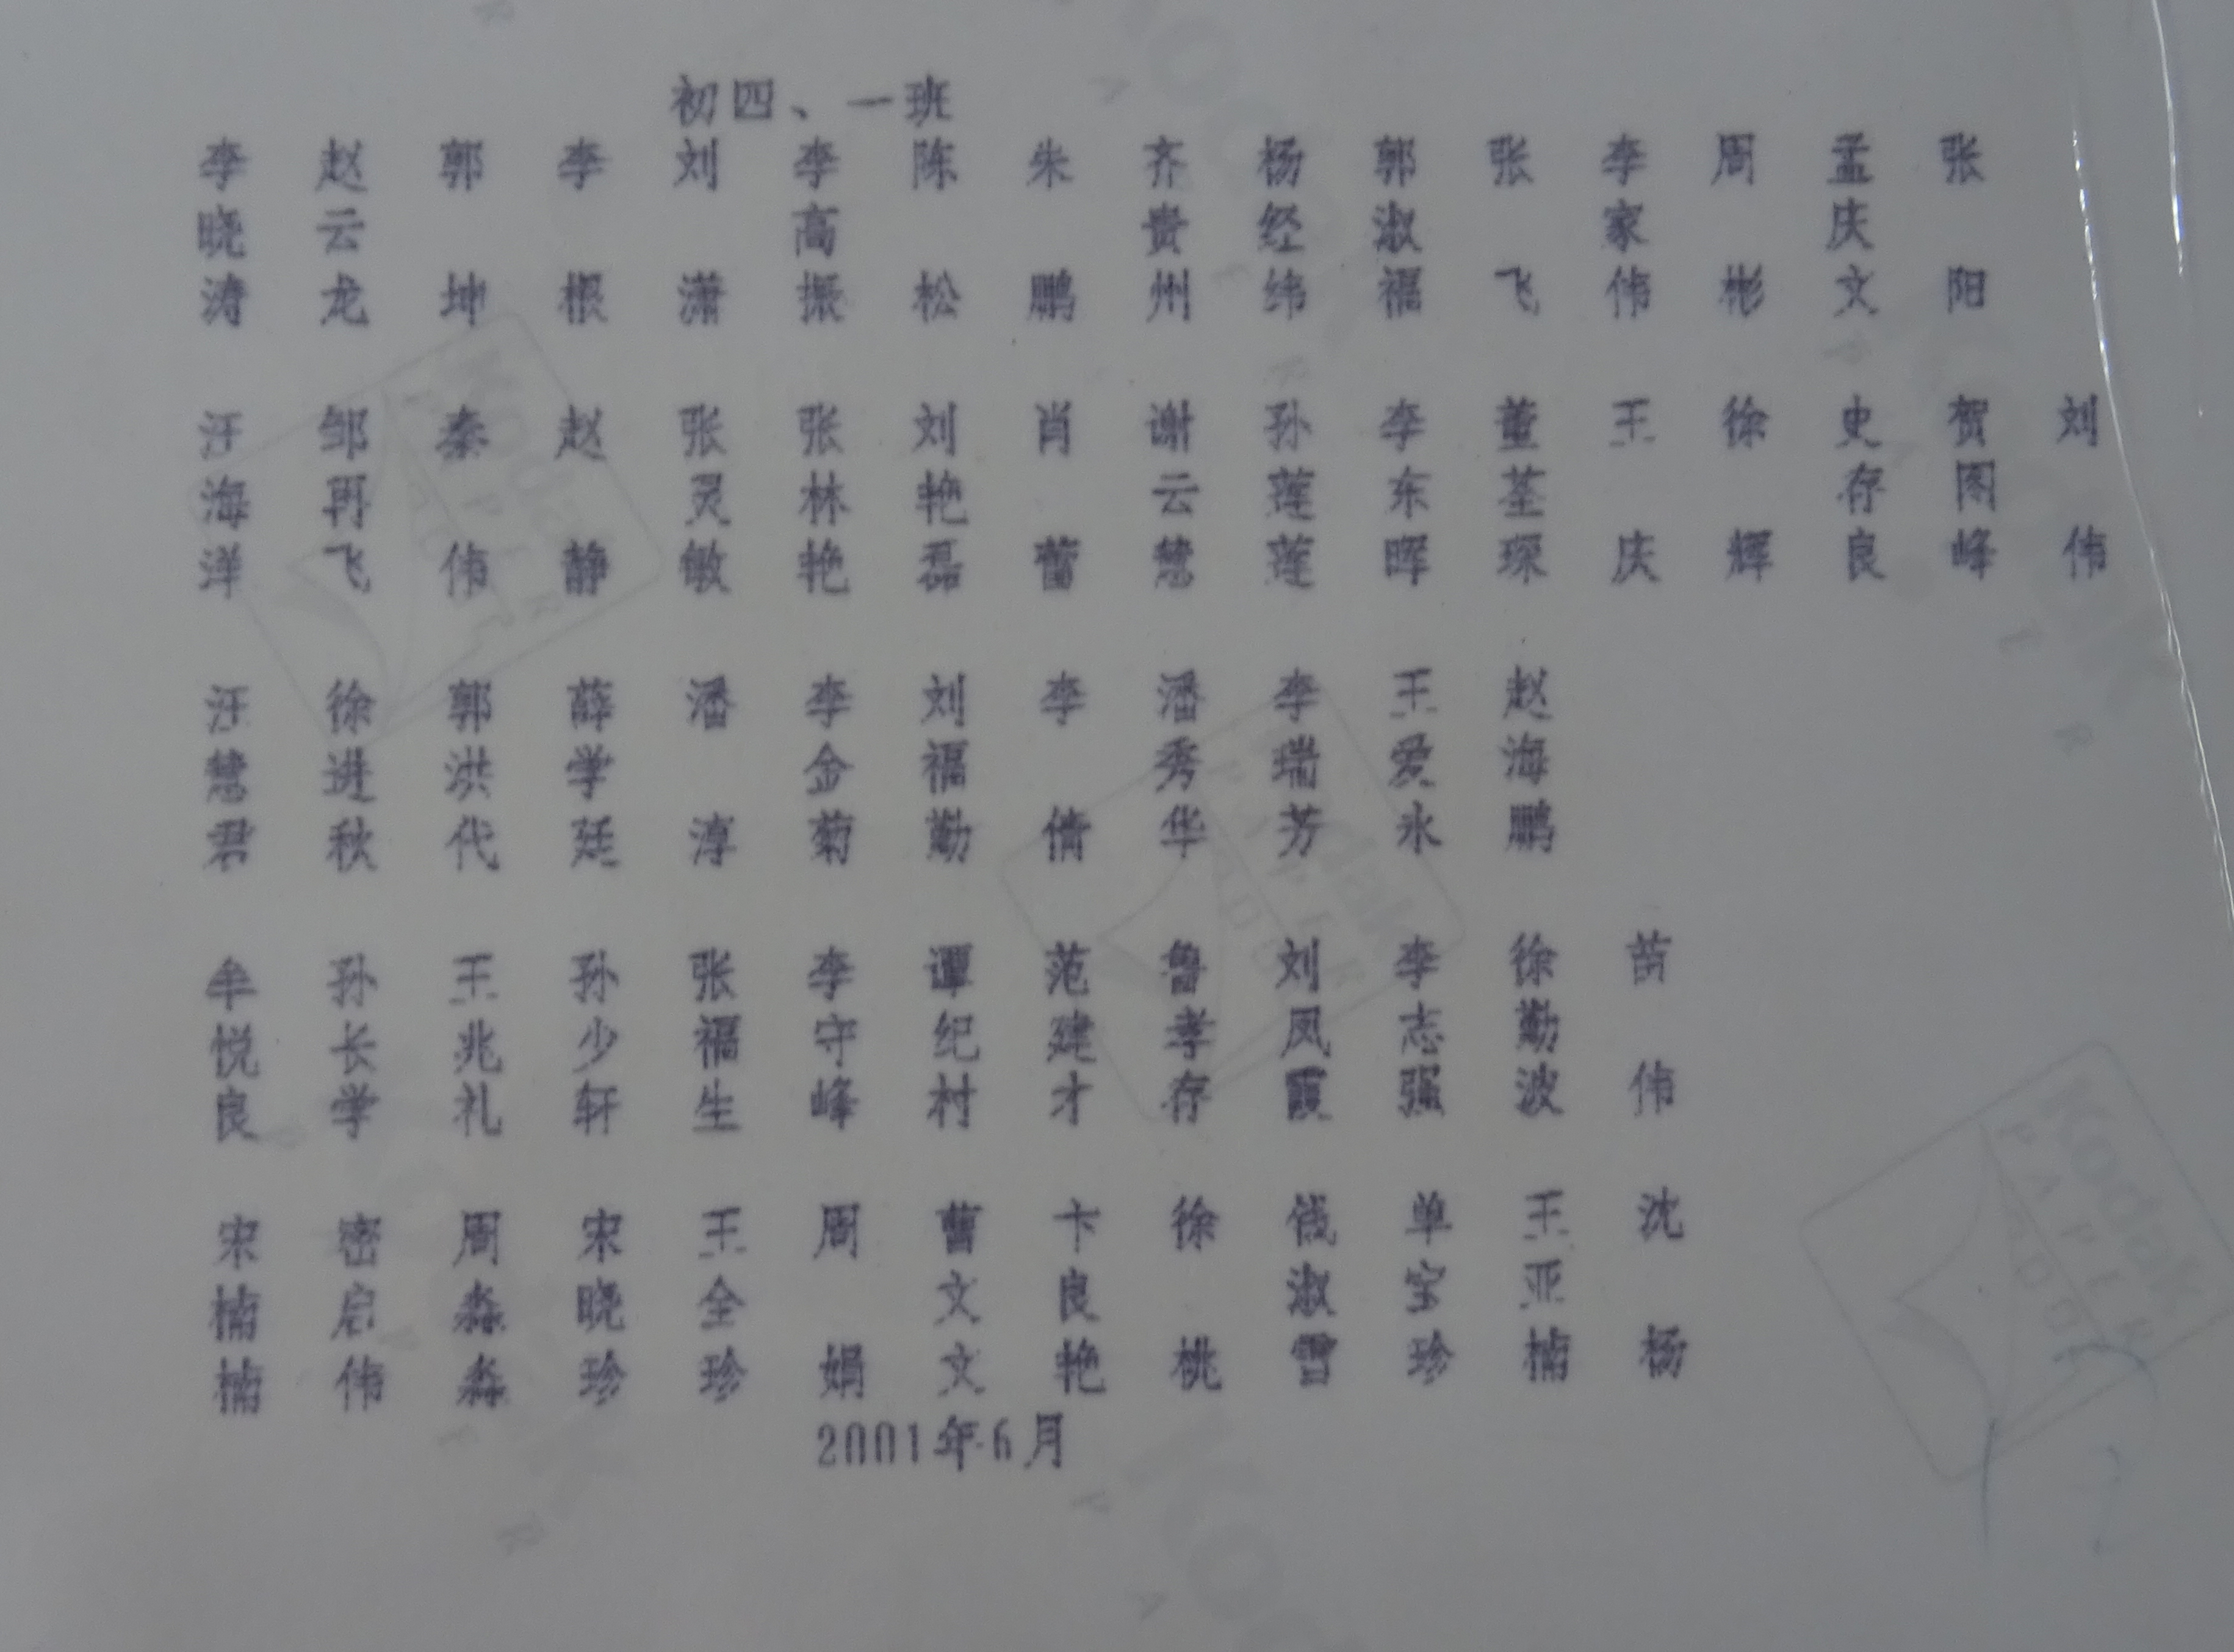 初四、一班
李晓涛 赵云龙 郭坤 李根 刘潇 李高振 陈松 朱鹏 齐贵州 杨经纬 郭淑福 张飞 李家伟 周彬 孟庆文 张阳
汪海洋 邹再飞 秦伟 赵静 张灵敏 张林艳 刘艳磊 肖蕾 谢云慧 孙莲莲 李东晖 董荃琛 王庆 徐辉 史存良 贺图峰 刘伟
汪慧君 徐进秋 郭洪代 薛学廷 潘淳 李金菊 刘福勤 李倩 潘秀华 李瑞芳 王爱永 赵海鹏
牟悦良 孙长学 王兆礼 孙少轩 张福生 李守峰 谭纪村 范建才 鲁孝存 刘凤霞 李志强 徐勤波 苗伟
宋楠楠 密启伟 周淼淼 宋晓珍 王全珍 周娟 曹文文 卞良艳 徐桃 钱淑雪 单宝珍 王亚楠 沈杨
2001年6月
Kodak